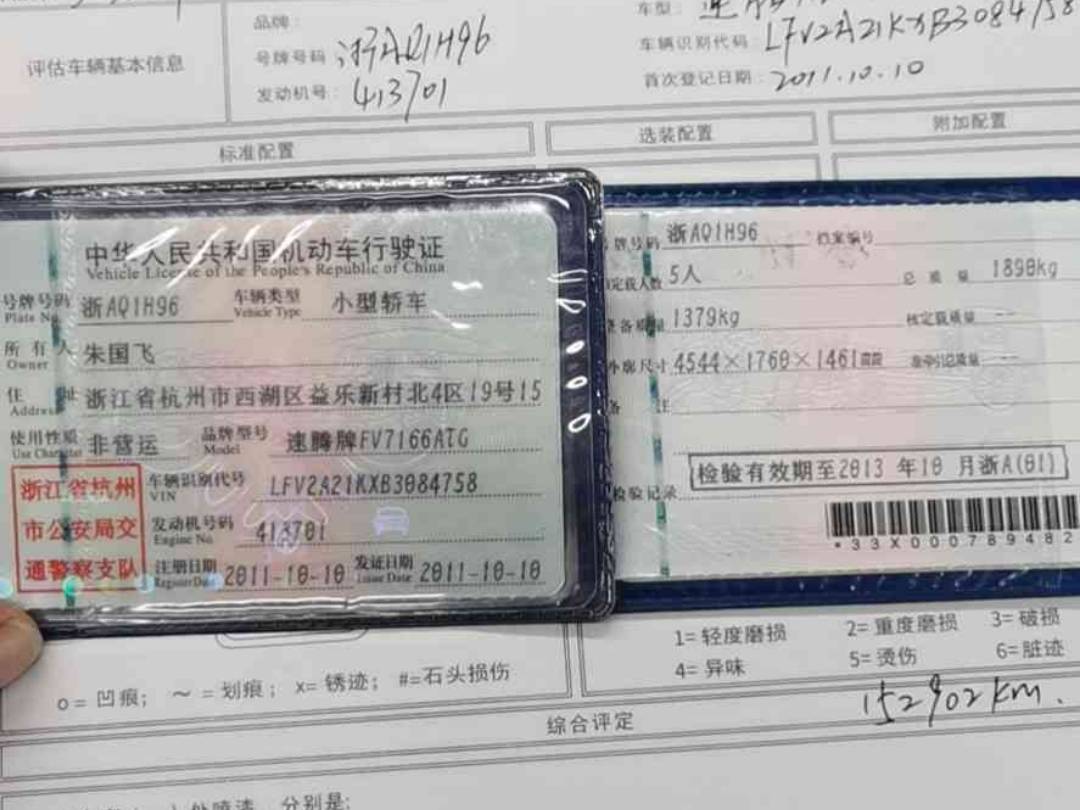 品牌:
车型:
评估车辆基本信息
号牌号码: 浙AQ1H96
车辆识别代码: LFV2A21KXB3084758
发动机号: 413701
首次登记日期: 2011.10.10
标准配置
选装配置
附加配置
中华人民共和国机动车行驶证
Vehicle License of the People's Republic of China
号牌号码 浙AQ1H96 车辆类型 小型轿车
Plate No. Vehicle Type
所有人 朱国飞
Owner
住址 浙江省杭州市西湖区益乐新村北4区19号15
Address
使用性质 非营运 品牌型号 速腾牌FV7166ATG
Use Character Model
浙江省杭州
市公安局交
通警察支队
车辆识别代号 LFV2A21KXB3084758
VIN
发动机号码 413701
Engine No.
注册日期 2011-10-10 发证日期 2011-10-10
Register Date Issue Date
牌号码 浙AQ1H96 档案编号
定载人数 5人 总质量 1890kg
备质量 1379kg 核定载质量 --
外廓尺寸 4544×1760×1461 准牵引总质量 --
备注
检验有效期至2013年10月浙A(01)
检验记录
*33X000789482
1=轻度磨损 2=重度磨损 3=破损
4=异味 5=烫伤 6=脏迹
o=凹痕; ~=划痕; x=锈迹; #=石头损伤
152902km.
综合评定
处喷漆, 分别是: